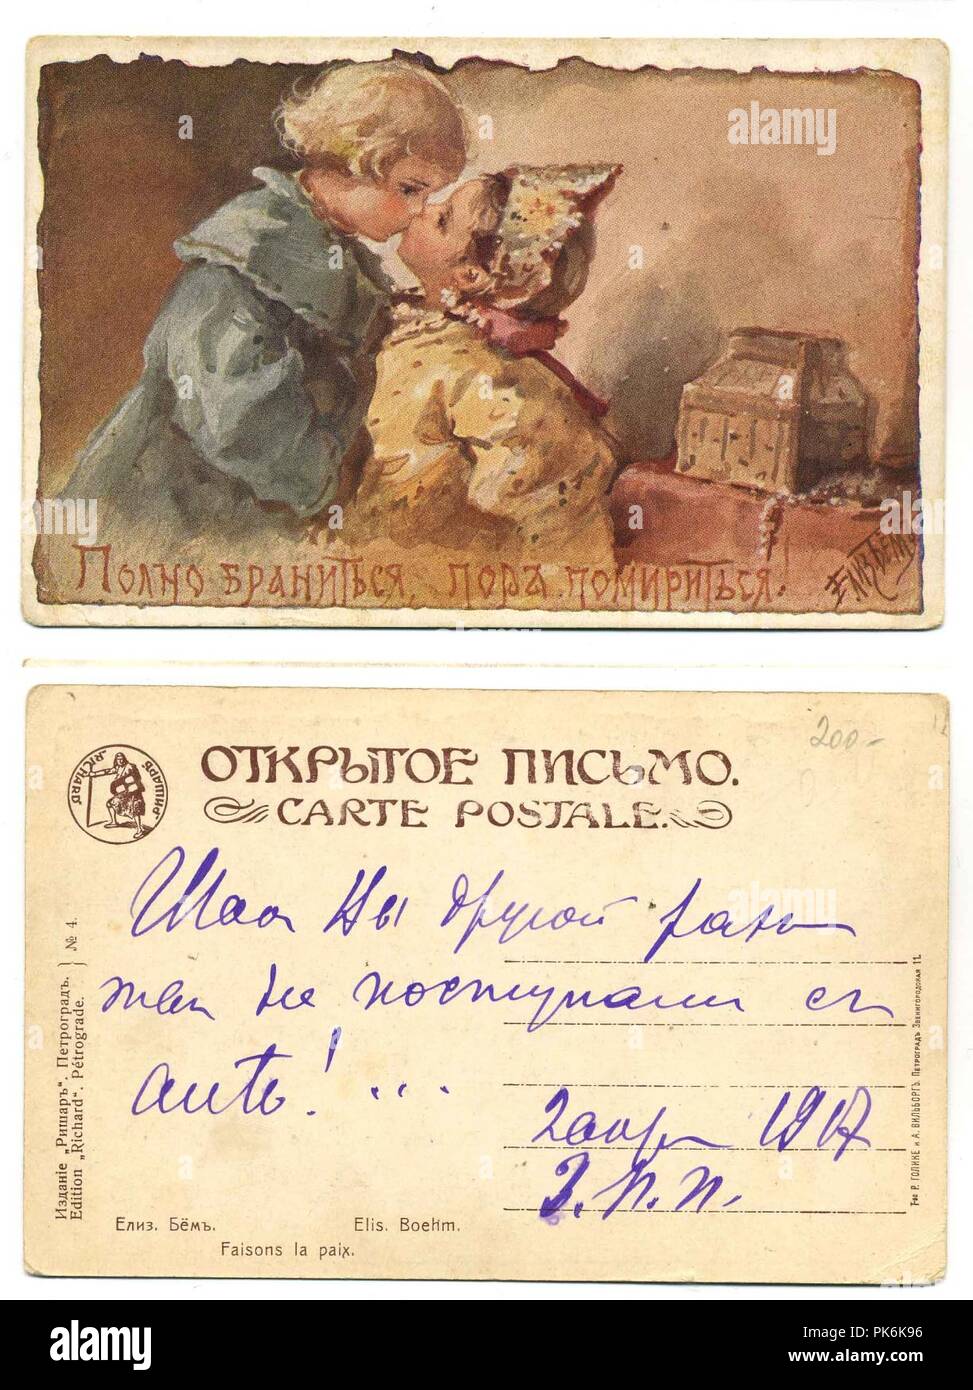 Полно браниться, пора помириться!
Елиз Бёмъ
200-
RICHARD
РИШАРЪ
ОТКРЫТОЕ ПИСЬМО.
CARTE POSTALE.
другой разъ
так не поступали съ
2 1917
З. П. П.
Елиз. Бёмъ.
Elis. Boehm.
Faisons la paix.
Изданіе „Ришаръ“. Петроградъ.
Edition „Richard“. Pétrograde.
№ 4.
Т-во Р. ГОЛИКЕ и А. ВИЛЬБОРГЪ. ПЕТРОГРАДЪ ЗВЕНИГОРОДСКАЯ 11.
alamy
alamy stock photo
PK6K96
www.alamy.com